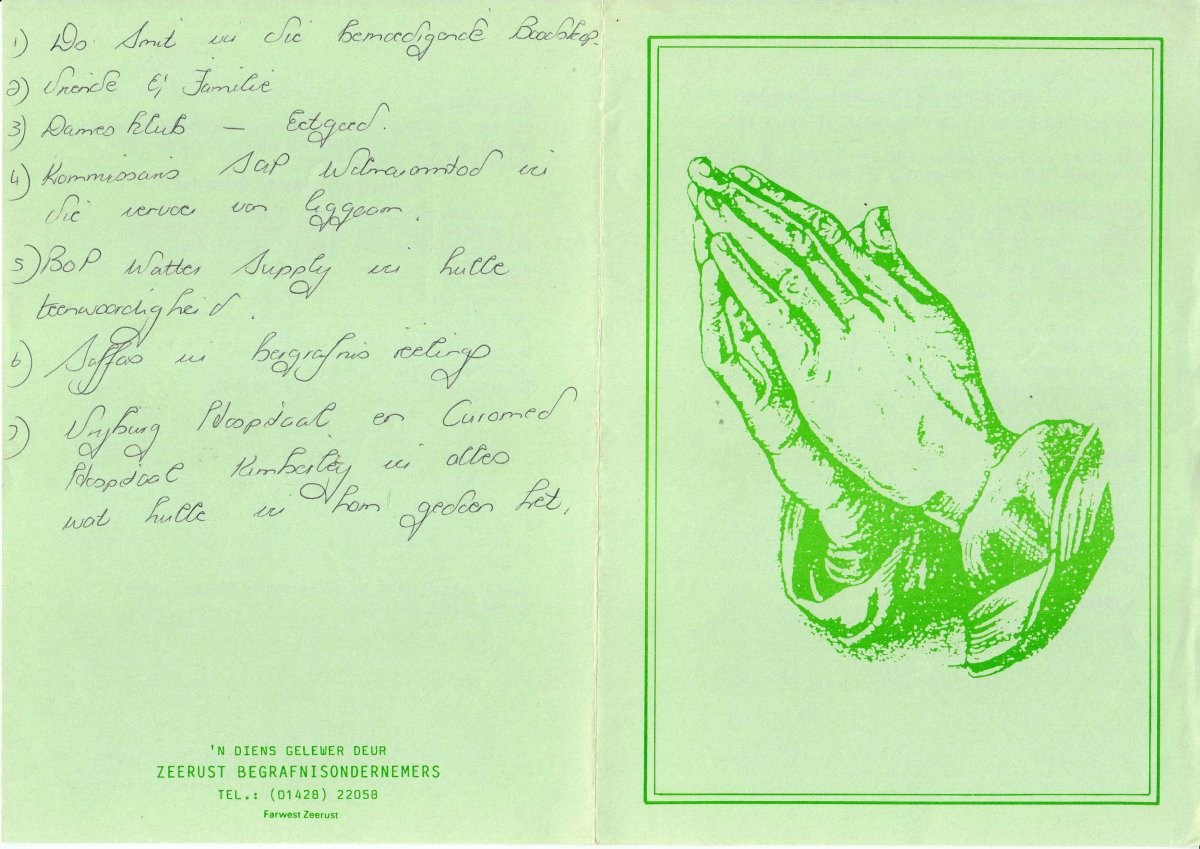 1) Ds Smit vir die bemoedigende Boodskap.
2) Vriende & Familie
3) Dames klub - Eetgoed.
4) Kommissaris SAP Wolmaranstad vir
die vervoer van liggaam.
5) BOP Watter Supply vir hulle
teenwoordigheid.
6) Saffas vir bergrafnis reelings
7) Vryburg Hospitaal en Curomed
Hospitaal Kimberley vir alles
wat hulle vir hom gedoen het.
'N DIENS GELEWER DEUR
ZEERUST BEGRAFNISONDERNEMERS
TEL.: (01428) 22058
Farwest Zeerust